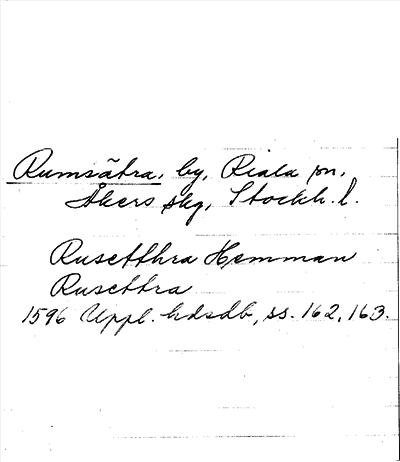 Rumsätra, by, Riala sn,
Åkers skg, Stockh. l.
Rusetthra Hemman
Rusettra
1596 Uppl. hdsdb, ss. 162, 163.